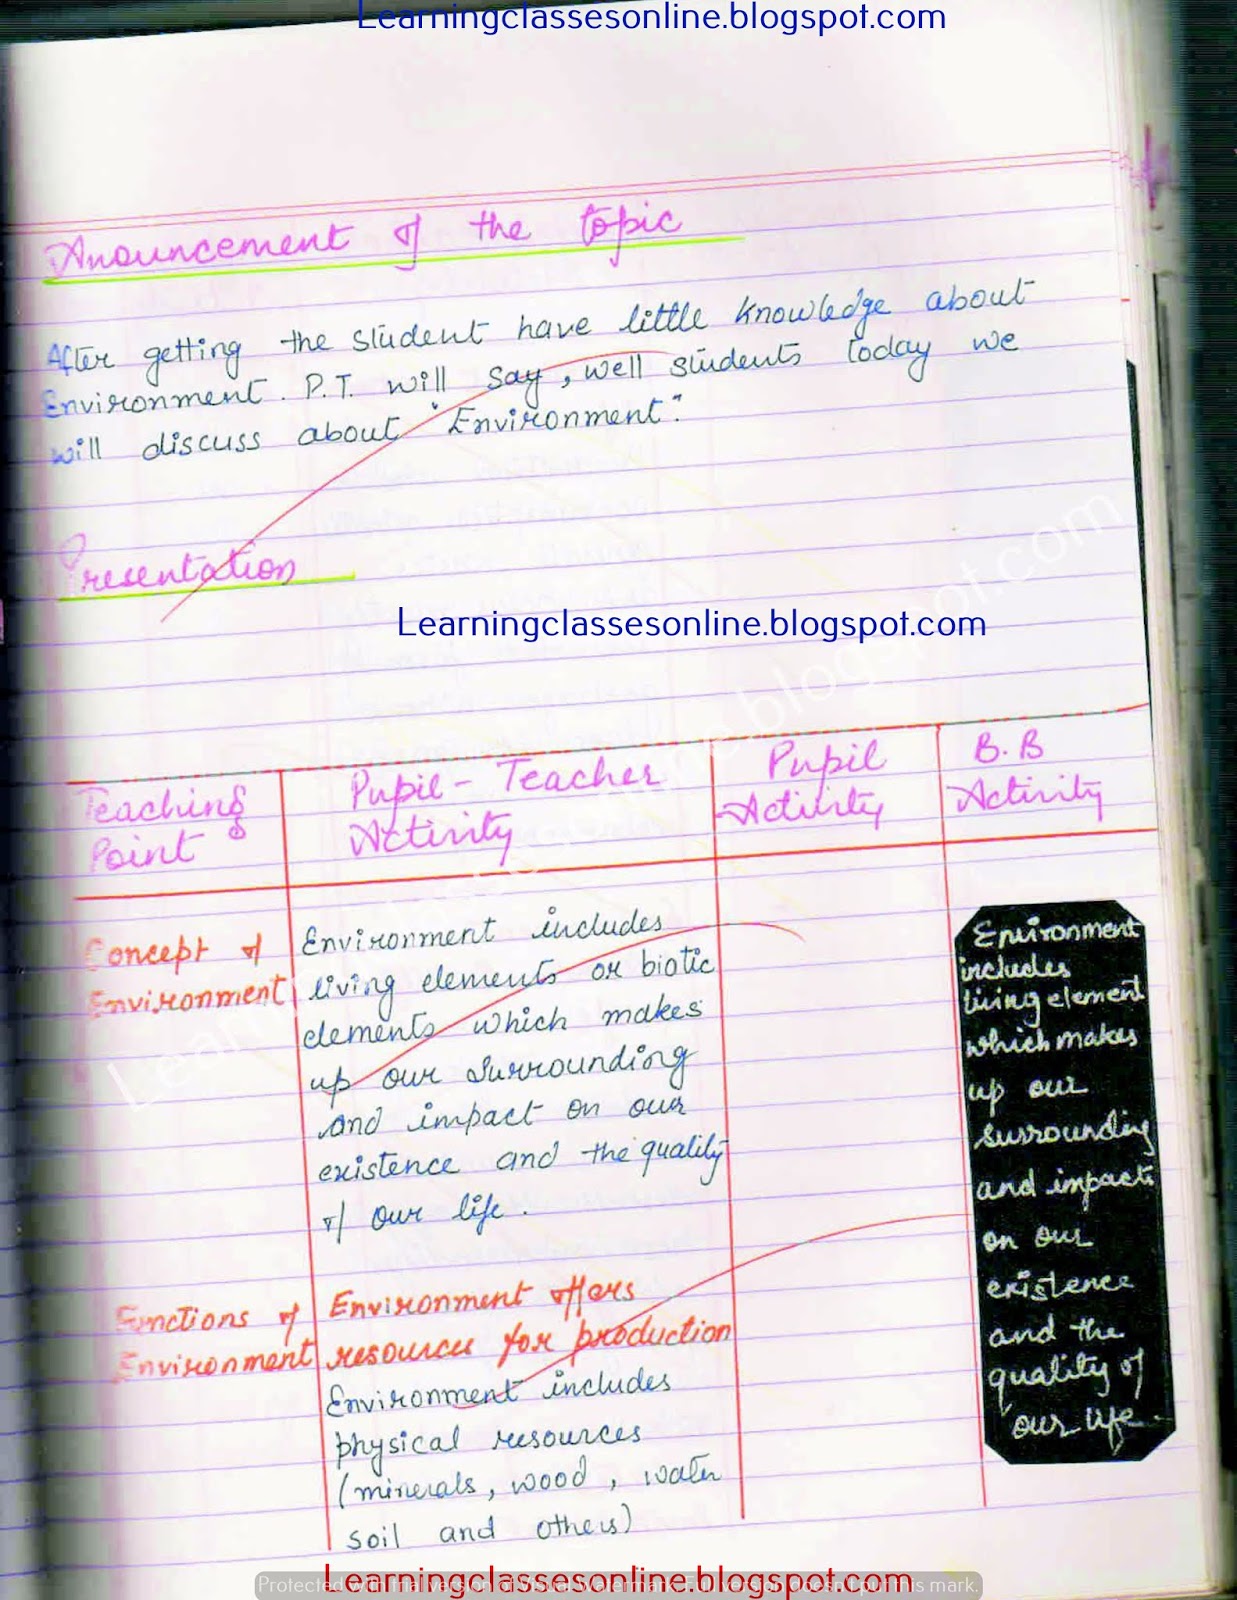 Learningclassesonline.blogspot.com
Anouncement of the topic
After getting the student have little knowledge about
Environment. P.T. will say, well students today we
will discuss about "Environment."
Presentation
Learningclassesonline.blogspot.com
Teaching
Point
Pupil-Teacher
Activity
Pupil
Activity
B.B
Activity
Concept of
Environment
Environment includes
living elements or biotic
elements which makes
up our surrounding
and impact on our
existence and the quality
of our life.
Environment
includes
living element
which makes
up our
surrounding
and impacts
on our
existence
and the
quality of
our life.
Functions of
Environment
Environment offers
resources for production
Environment includes
physical resources
(minerals, wood, water
soil and others)
Learningclassesonline.blogspot.com
Protected with trial version of Visual Watermark. Full version doesn't put this mark.